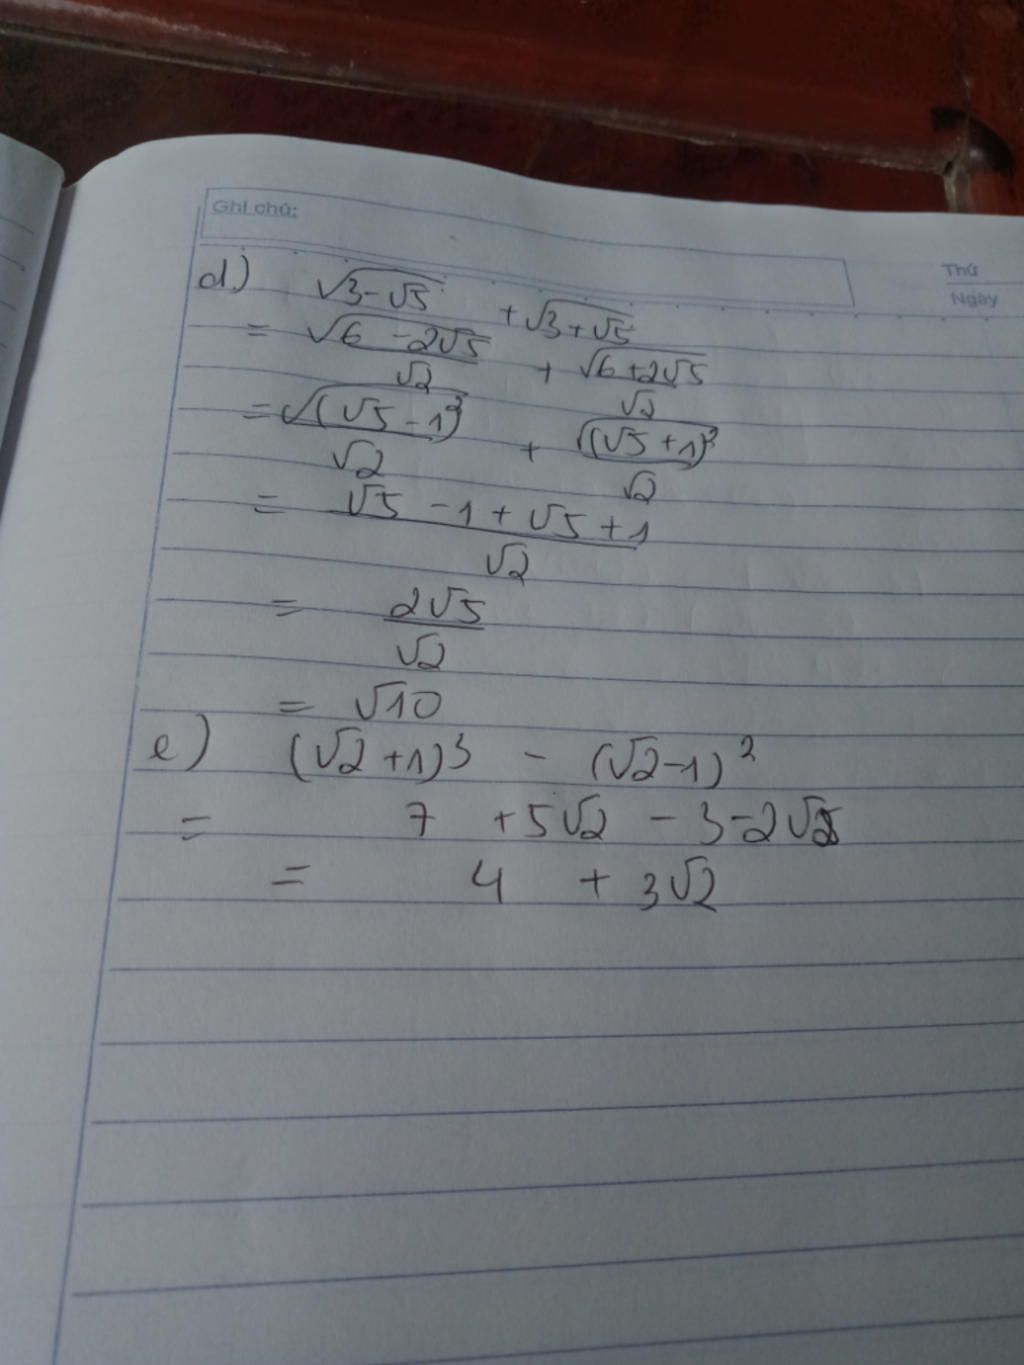 Ghi chú:
Thứ
Ngày
d) √(3-√5) + √(3+√5)
= √(6-2√5)/√2 + √(6+2√5)/√2
= √((√5-1)²)/√2 + √((√5+1)²)/√2
= (√5-1+√5+1)/√2
= 2√5/√2
= √10
e) (√2+1)³ - (√2-1)²
= 7 + 5√2 - 3-2√2
= 4 + 3√2